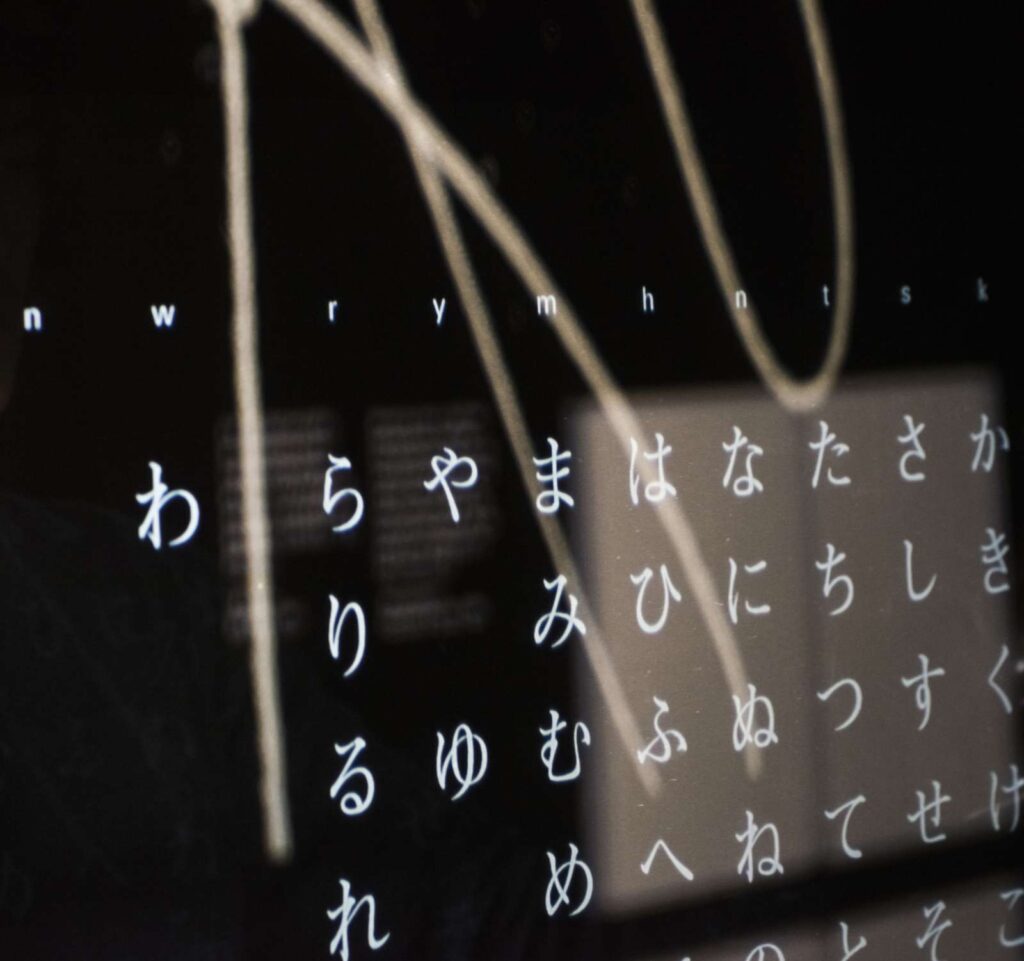 n w r y m h n t s k
わ ら や ま は な た さ か
り み ひ に ち し き
る ゆ む ふ ぬ つ す く
れ め へ ね て せ け
の と そ こ